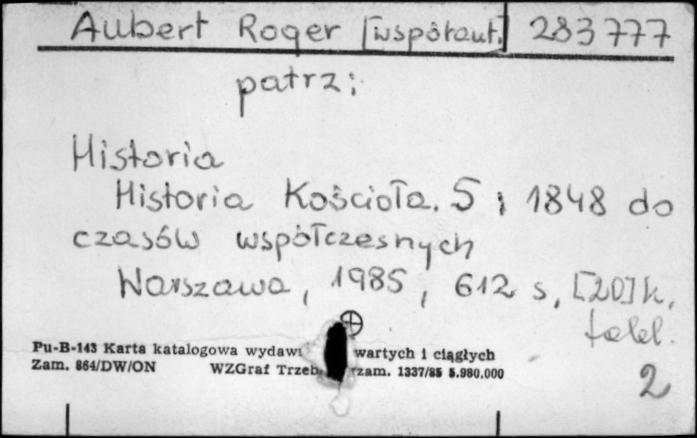 Aubert Roger [współaut.] 283777
patrz:
Historia
Historia Kościoła. 5 : 1848 do
czasów współczesnych
Warszawa, 1985, 612 s, [20] k.
tabl.
Pu-B-143 Karta katalogowa wydaw wartych i ciągłych
Zam. 864/DW/ON WZGraf Trzeb zam. 1337/85 5.980.000
2